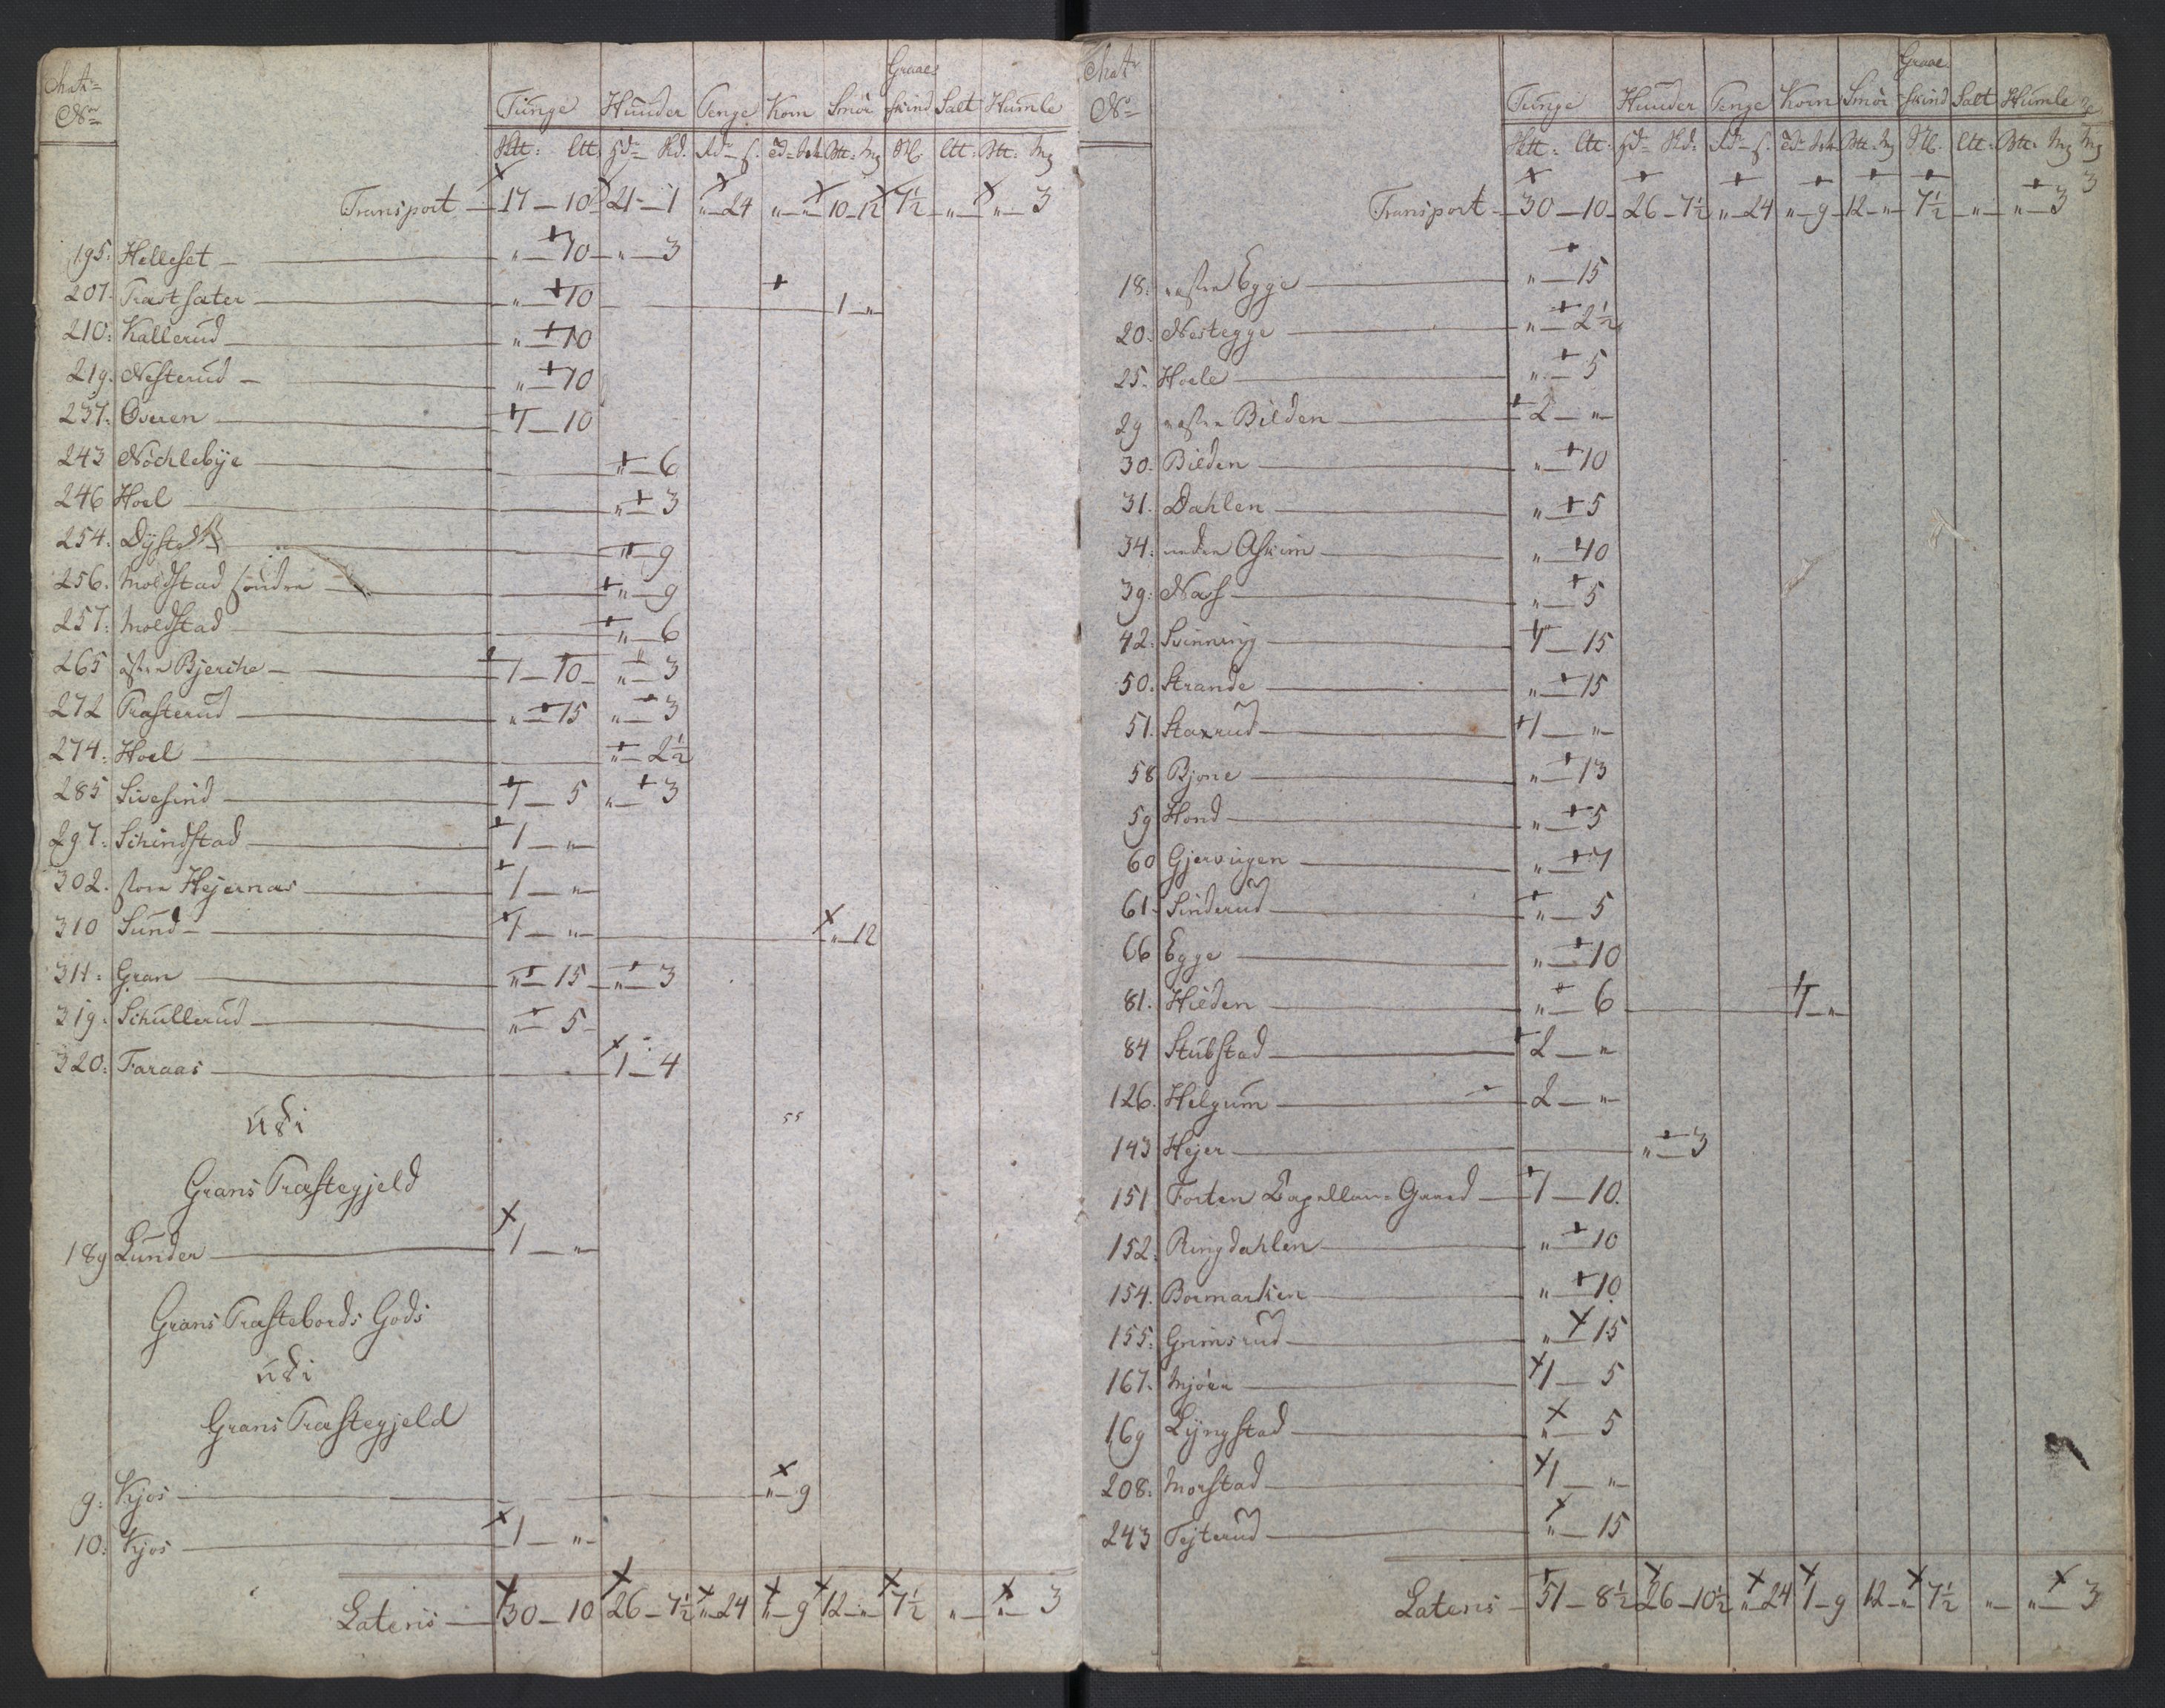 Matr: Graae
No Tunge Huuder Penge Korn Smör skind Salt Humle
Transport 17 – 10 21 – 1 " – 24 " – " 10 – 12 7½ – " " – 3
195. Helleset " – 10 – " – 3
207. Præstsæter " – 10 1 – "
210: Kallerud " – 10
219. Nesterud " – 10
237. Overen 1 – 10
243 Nöchlebye " – 6
246 Hoel " – 3
254. " – 9
256. Moldstad söndre " – 9
257. Moldstad " – 6
265 östre Bjerche 1 – 10 – " – 3
272 Præsterud " – 15 " – 3
274. Hoel " – 2½
285 Sivesind 1 – 5 " – 3
297. Schindstad 1 – "
302. store Hejernæs 1 – "
310 Sund 1 – " " – 12
311. Gran " – 15 – " – 3
319. Schullerud " – 5
320. Faraas 1 – 4
udi
Grans Præstegjeld
189 Lunder 1 – "
Grans Præstebords Gods
udi
Grans Præstegjeld
9. Kjos " – 9
10. Kjos 1 – "
Lateris 30 – 10 26 – 7½ " – 24 " – 9 12 – " 7½ " – " – 3
Matr Graae
No Tunge Huuder Penge Korn Smör skind Salt Humle
Transport 30 – 10 26 – 7½ " – 24 " – 9 – 12 – " 7½ – " – " – 3
18. Egge " – 15
20. Nestegge " – 2½
25. Hoele " – 5
29 Bilden 2 – "
30. Bilden " – 10
31. Dahlen " – 5
34. neden Askim " – 10
39. Næs " – 5
42. Svinning 1 – 15
50. Strande " – 15
51. Staxrud 1 – "
58 Bjone " – 13
59 Hond " – 5
60 Gjervingen " – 7
61. Sinderud " – 5
66 Egge " – 10
81. Hilden " – 6 1 – "
84 Stubstad 2 – "
126. Helgum 2 – "
143 Hejer " – 3
151 Forten Capellan-Gaard 1 – 10.
152. Ringdahlen " – 10
154. Bormarken " – 10
155. Grimsrud " – 15
167. Mjöen 1 – 5
169 Lyngstad " – 5
208. Morstad 1 – "
243 Tejterud " – 15
Lateris 51 – 8½ 26 – 10½ " – 24 1 – 9 12 – " 7½ " – " – 3